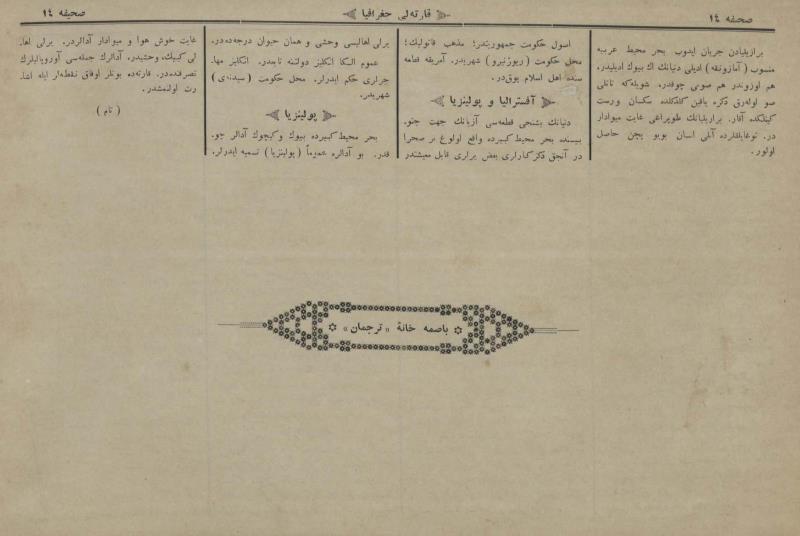 صحیفه ١٤
قارته‌لی جغرافیا
صحیفه ١٤
برازیلیادن جریان ایدوب بحر محیط عربیه
منسوب (آمازونقه) ادیلی دنیانك اك بیوك ادیلیدر،
هم اوزوندر هم صویی چوقدر. شویله‌که تاتلی
صو اوله‌رق دکزه یاقین کلدکلده سکسان ورست
کیتکده آقار. برازیلیانك طوپراغی غایت میوادار
در. توغایلقلرده آتلی انسان بویو پچن حاصل
اولور.
اصول حکومت جمهوریتدر؛ مذهب قاتولیك؛
محل حکومت (ریوژنیرو) شهریدر. آمریقه قطعه
سنده اهل اسلام یوق‌در.
آفسترالیا و پولینزیا
دنیانك بشنجی قطعه‌سی آزیانك جهت جنو.
بیسنده بحر محیط کبیرده واقع اولوغ بر صحرا
در آنجق دکز کنارلری بعض یرلری قابل معیشتدر
یرلی اهالیسی وحشی و همان حیوان درجه‌ده‌در.
عموم الکا انکلیز دولتنه تابعدر. انکلیز مها.
جرلری حکم ایدرلر. محل حکومت (سیدنه‌ی)
شهریدر.
پولینزیا
بحر محیط کبیرده بیوك و کیچوك آدالر چو.
قدر. بو آدالره عموماً (پولینزیا) تسمیه ایدرلر.
غایت خوش هوا و میوادار آدالردر. یرلی اها.
لی کییك، وحشیدر. آدالرك جمله‌سی آوروپالیلرك
تصرفنده‌در. قارته‌ده بونلر اوفاق نقطه‌لر ایله اشا.
رت اولنمشدر.
(تام)
باصمه خانۀ «ترجمان»